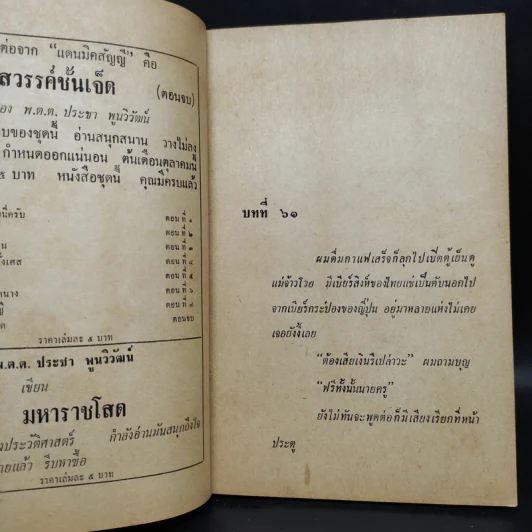 ต่อจาก “แดนมิคสัญญี” คือ
สวรรค์ชั้นเจ็ด
(ตอนจบ)
ของ พ.ต.ต. ประชา พูนวิวัฒน์
บของชุดนี้ อ่านสนุกสนาน วางไม่ลง
กำหนดออกแน่นอน ต้นเดือนตุลาคมนี้
๕ บาท หนังสือชุดนี้ คุณมีครบแล้ว
นี่ครับ ตอนที่ ๑
ตอนที่ ๒
น ตอนที่ ๓
ตอนที่ ๔
ตอนที่ ๕
นาง ตอนที่ ๖
ตอนที่ ๗
ด ตอนจบ
ราคาเล่มละ ๕ บาท
พ.ต.ต. ประชา พูนวิวัฒน์
เขียน
มหาราชโสด
งประวัติศาสตร์ กำลังอ่านมันสนุกถึงใจ
ายแก้ว รีบหาซื้อ
ราคาเล่มละ ๕ บาท
บทที่ ๖๑
ผมดื่มกาแฟเสร็จก็ลุกไปเปิดตู้เย็นดู
แม่จ้าวโวย มีเบียร์สิงห์ของไทยแช่เป็นตับนอกไป
จากเบียร์กระป๋องของญี่ปุ่น อยู่มาหลายแห่งไม่เคย
เจอยังงี้เลย
“ต้องเสียเงินรึเปล่าวะ” ผมถามบุญ
“ฟรีทั้งนั้นนายครู”
ยังไม่ทันจะพูดต่อก็มีเสียงเรียกที่หน้า
ประตู